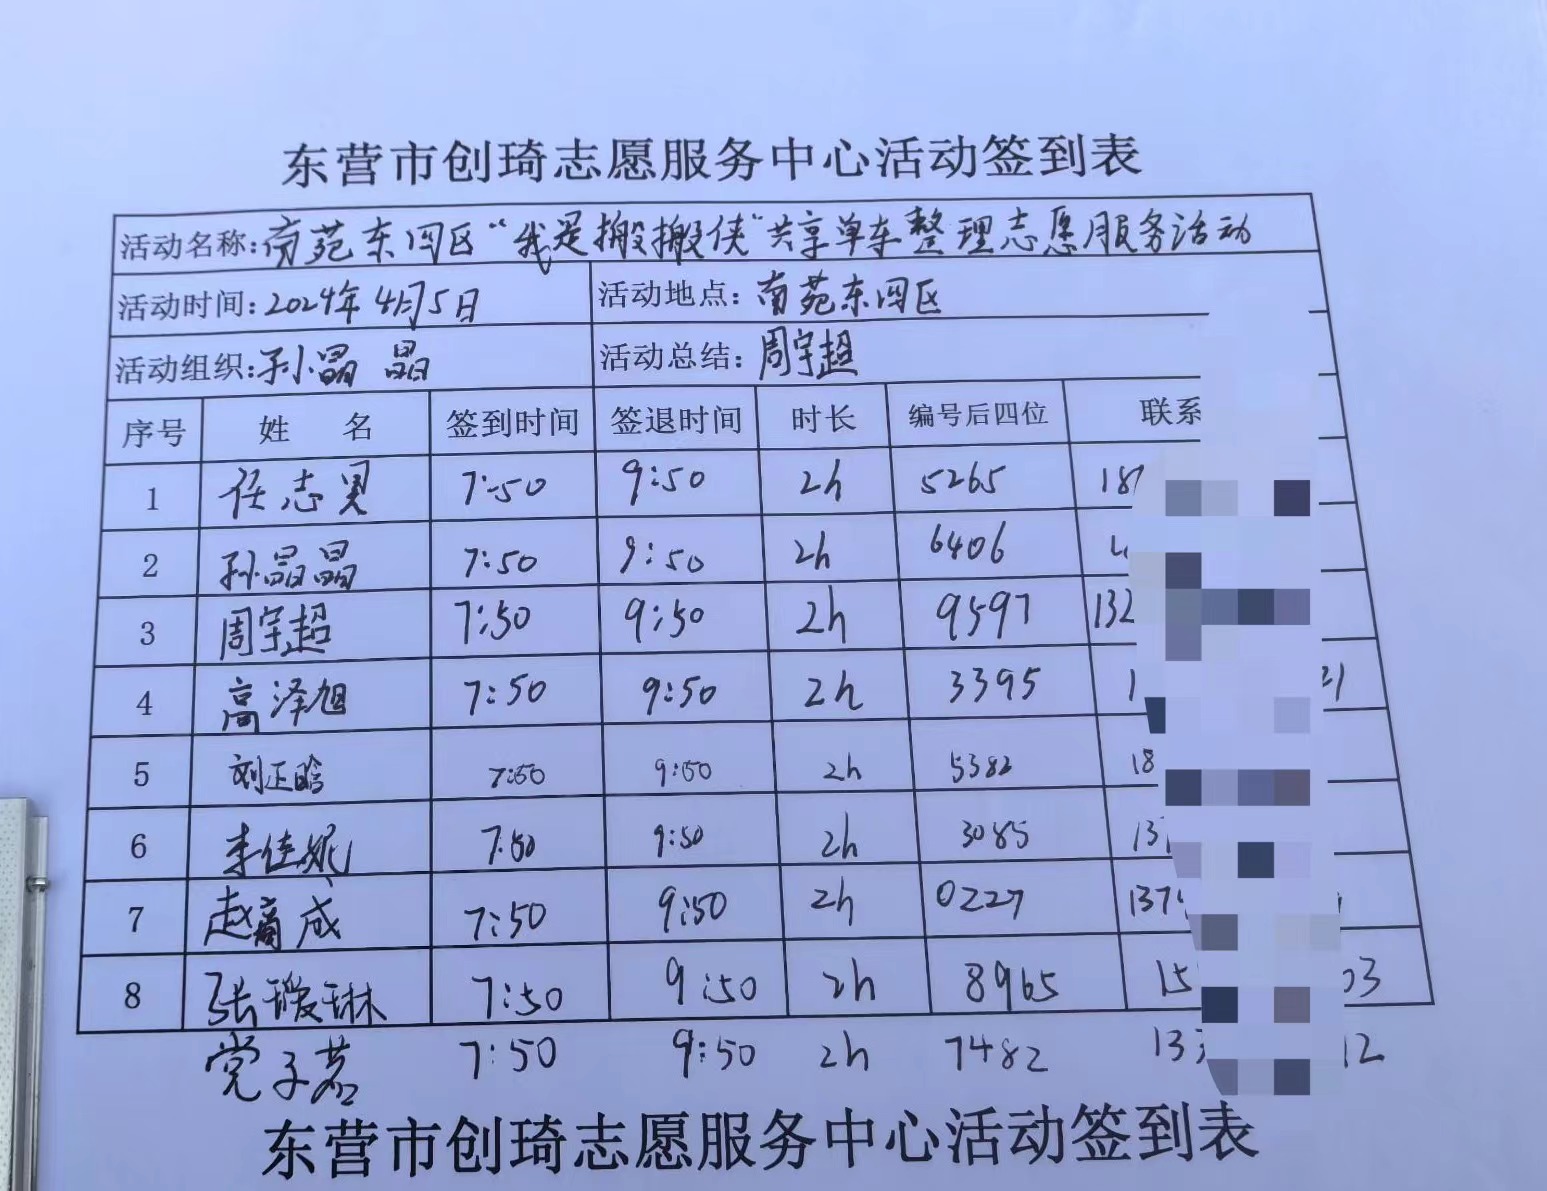 东营市创琦志愿服务中心活动签到表
活动名称:南苑东园区“我是搬搬侠”共享单车整理志愿服务活动
活动时间:2024年4月5日 活动地点:南苑东园区
活动组织:孙晶晶 活动总结:周宇超
序号 姓名 签到时间 签退时间 时长 编号后四位 联系
1 任志昊 7:50 9:50 2h 5265 18
2 孙晶晶 7:50 9:50 2h 6406
3 周宇超 7:50 9:50 2h 9597 132
4 高泽旭 7:50 9:50 2h 3395 1 21
5 刘正晗 7:50 9:50 2h 5382 18
6 李佳妮 7:50 9:50 2h 3085 13
7 赵商成 7:50 9:50 2h 0227 137
8 张瑷琳 7:50 9:50 2h 8965 15 03
党子茗 7:50 9:50 2h 7482 13 12
东营市创琦志愿服务中心活动签到表